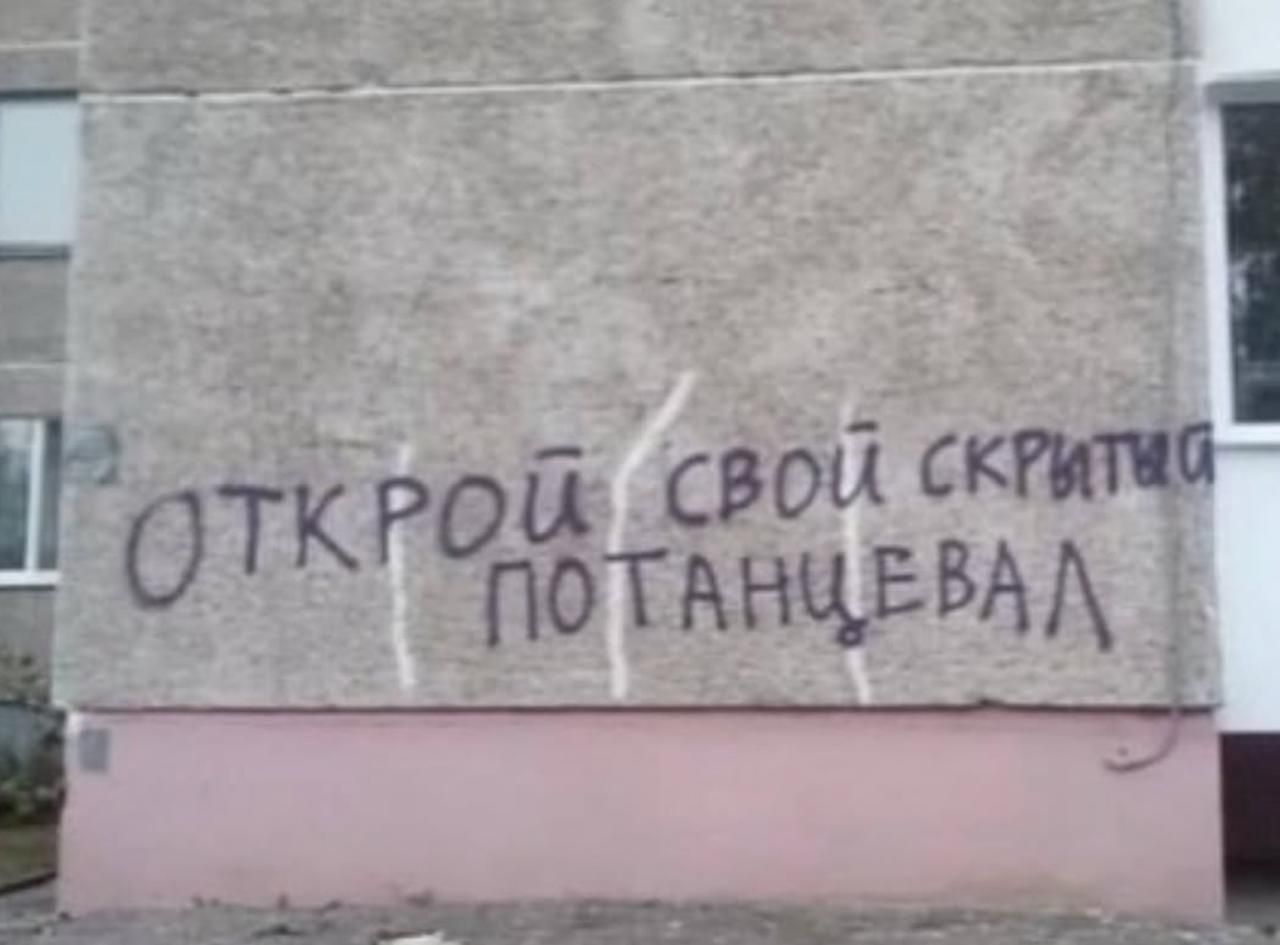 ОТКРОЙ СВОЙ СКРЫТЫЙ
ПОТАНЦЕВАЛ